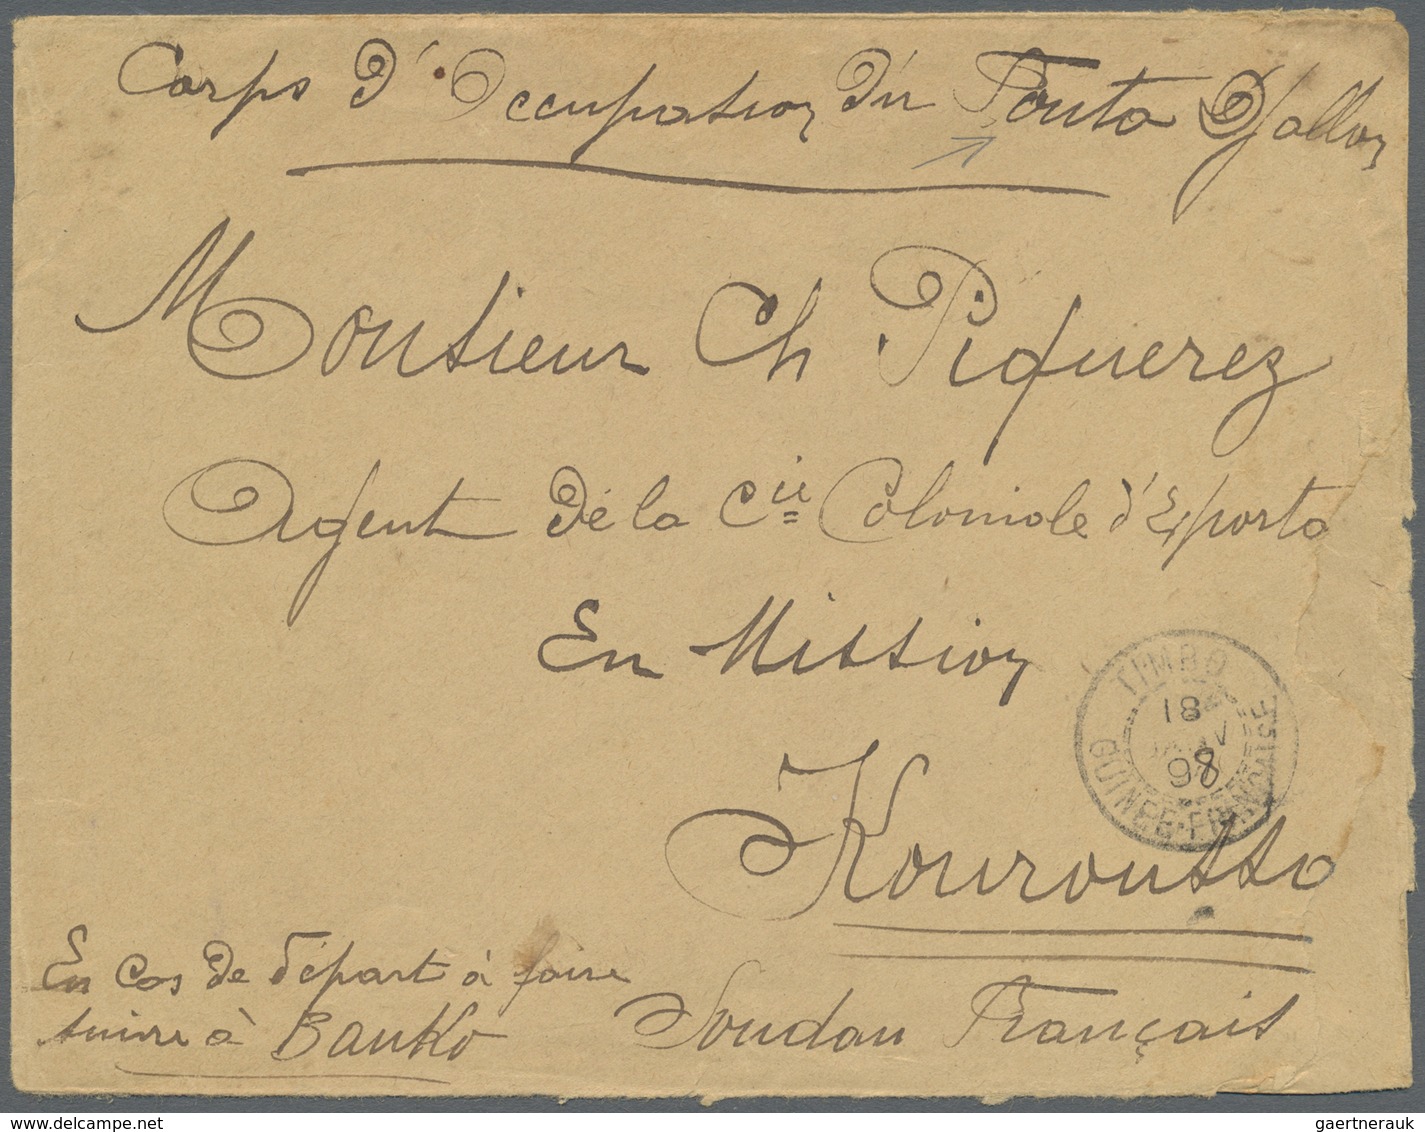 Corps d'Occupation du Fouta Djallon
Monsieur Ch Piquerez
Agent de la Cie Coloniale d'Exporta
En Mission
TIMBO
18
JANV
98
GUINEE-FRANÇAISE
Kouroussa
En Cas de départ à faire
suivre à Banko
Soudan Français
delcampe.net
gaertnerauk